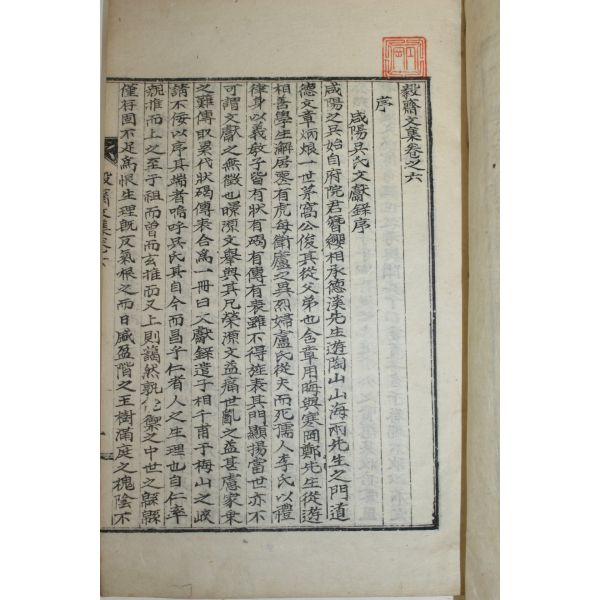 毅齋文集卷之六
序
咸陽吳氏文獻錄序
咸陽之吳始自府院君簪纓相承德溪先生遊陶山山海兩先生之門道
德文章炳烺一世茅窩公俊其從父弟也含章用晦與寒岡鄭先生從遊
相善學生解居憂有虎每衛廬之異烈婦盧氏從夫而死孺人李氏以禮
律身以義敎子皆有狀有碣有傳有表雖不得旌表其門顯揚當世亦不
可謂文獻之無徵也暻源文擧與其兄榮源文益痛世亂之益甚慮家乘
之難傳取累代狀碣傳表合爲一冊曰文獻錄遣子相千責予梅山之
請不佞以序其端者嗚呼吳氏其自今而昌乎仁者人之生理也自仁率
親推而上之至于祖而曾而玄推而又上則藹然孰禦之中世之緜緜
僅存固不足爲恨生理旣反氣根之而日盛盈階之玉樹滿庭之槐陰不
毅齋文集卷六
一